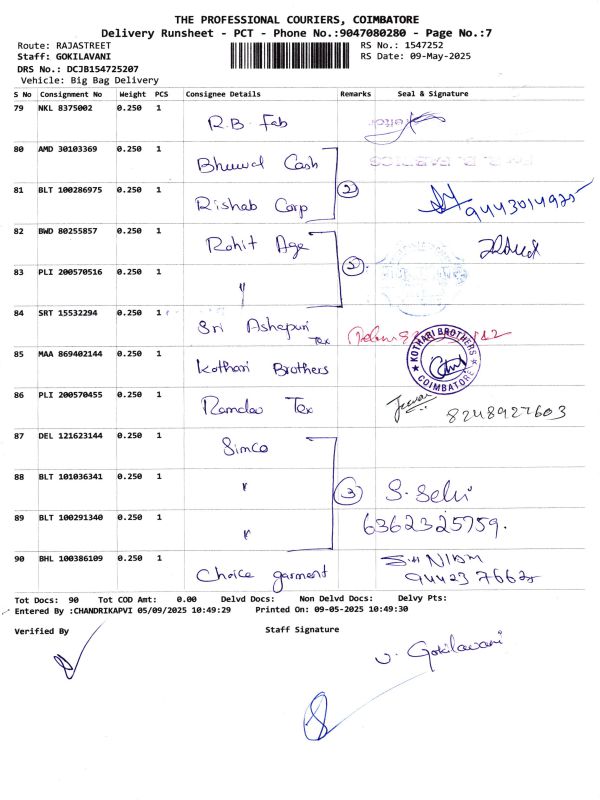 THE PROFESSIONAL COURIERS, COIMBATORE
Delivery Runsheet - PCT - Phone No.:9047080280 - Page No.:7
Route: RAJASTREET RS No.: 1547252
Staff: GOKILAVANI RS Date: 09-May-2025
DRS No.: DCJB154725207
Vehicle: Big Bag Delivery
S No Consignment No Weight PCS Consignee Details Remarks Seal & Signature
79 NKL 8375002 0.250 1 R.B. Fab
80 AMD 30103369 0.250 1 Bhuwal Cash
81 BLT 100286975 0.250 1 Rishab Corp 2 9443014925
82 BWD 80255857 0.250 1 Rohit Age 2
83 PLI 200570516 0.250 1 "
84 SRT 15532294 0.250 1 Sri Ashapuri Tex
85 MAA 869402144 0.250 1 Kothari Brothers KOTHARI BROTHERS COIMBATORE
86 PLI 200570455 0.250 1 Ramdev Tex 8248927603
87 DEL 121623144 0.250 1 Simco
88 BLT 101036341 0.250 1 " 3 S. Selvi
89 BLT 100291340 0.250 1 " 6362325759.
90 BHL 100386109 0.250 1 Choice garment
Tot Docs: 90 Tot COD Amt: 0.00 Delvd Docs: Non Delvd Docs: Delvy Pts:
Entered By :CHANDRIKAPVI 05/09/2025 10:49:29 Printed On: 09-05-2025 10:49:30
Verified By Staff Signature
v. Gokilavani